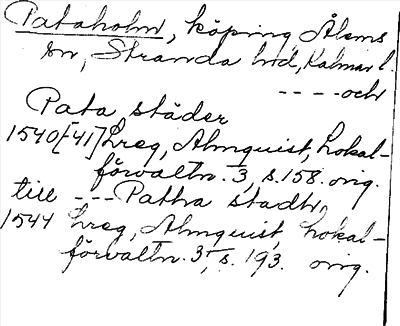 Pataholm, köping Ålems
sn, Stranda hd, Kalmar l.
- - - - och
Pata städer
1540[-41] Lreg, Almquist, Lokal-
förvaltn. 3, s. 158. orig.
till - - - Patha stadh,
1544 Lreg, Almquist, Lokal-
förvaltn. 3, s. 193. orig.